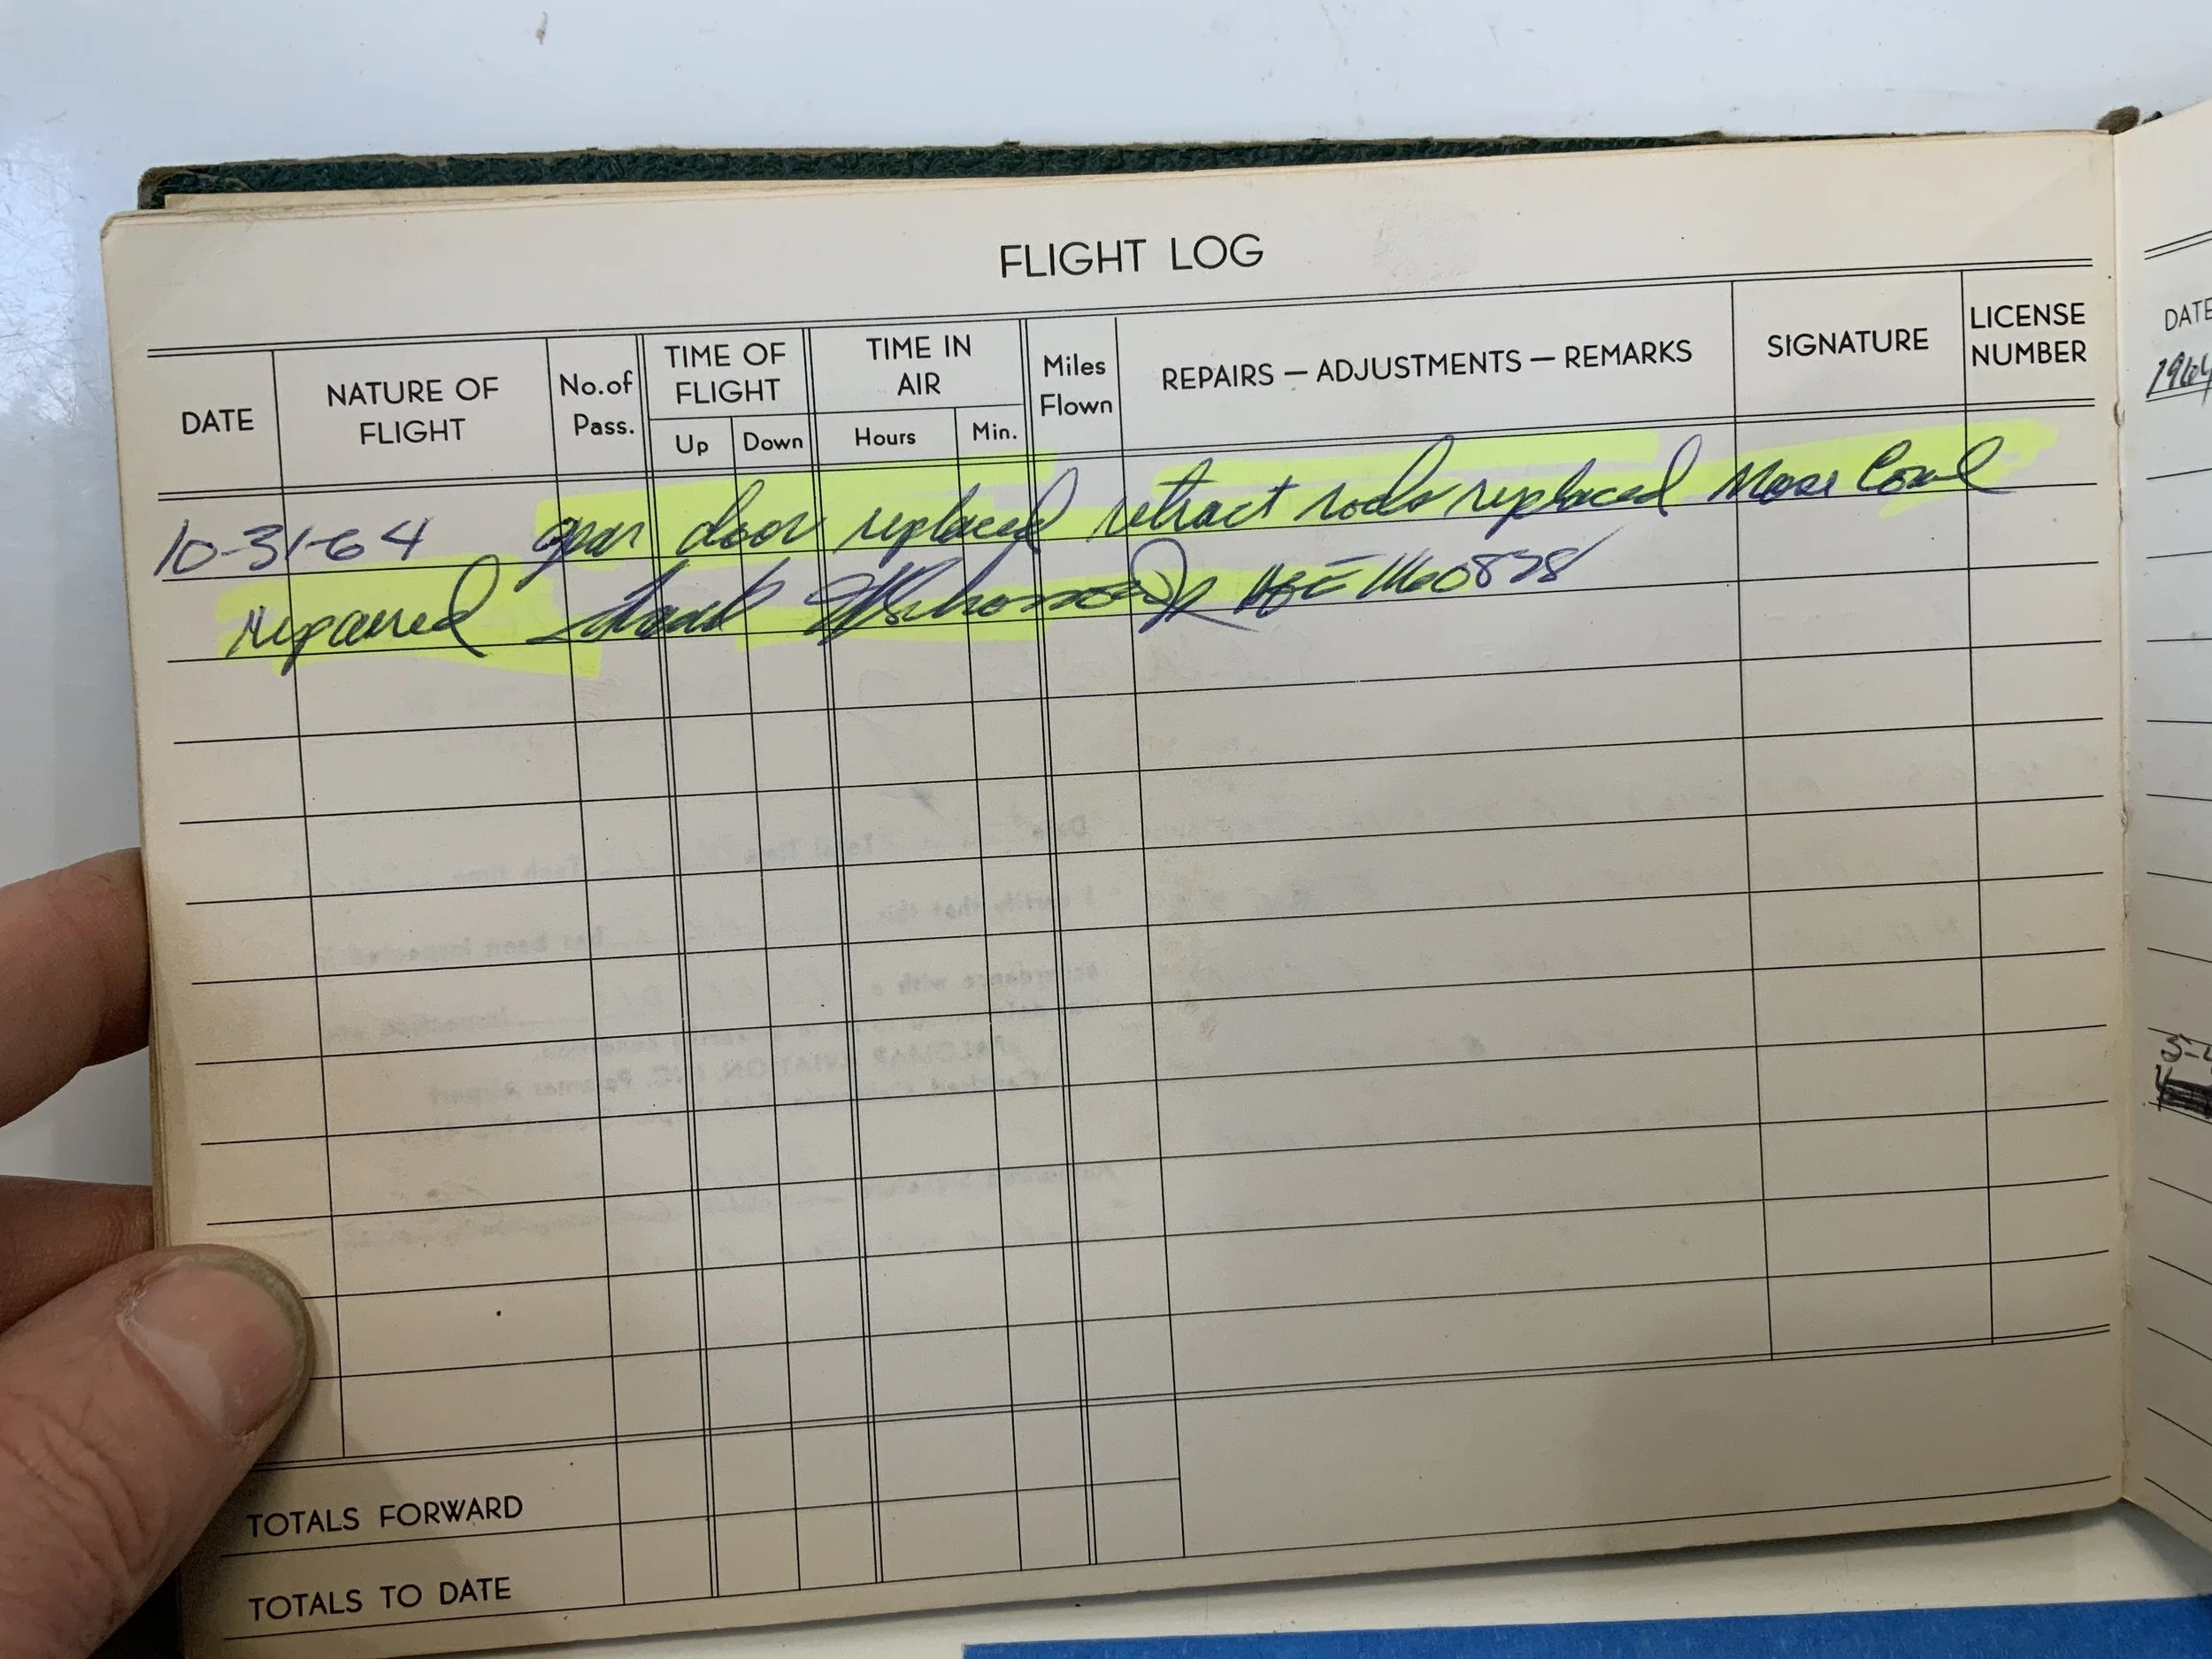 FLIGHT LOG
DATE
NATURE OF FLIGHT
No. of Pass.
TIME OF FLIGHT
Up
Down
TIME IN AIR
Hours
Min.
Miles Flown
REPAIRS — ADJUSTMENTS — REMARKS
SIGNATURE
LICENSE NUMBER
10-31-64 gear door replaced retract rods replaced Nose Cowl
Repaired A&E 1460878
TOTALS FORWARD
TOTALS TO DATE
DATE
1964